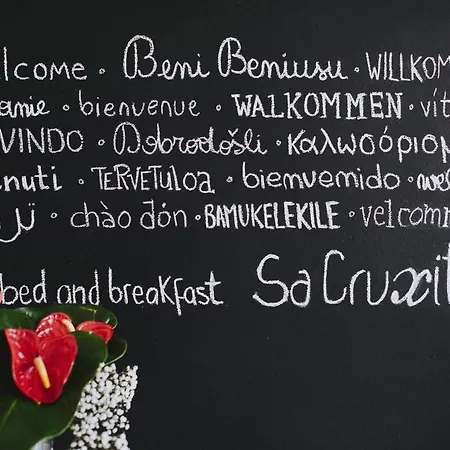 elcome · Beni Beniusu · WILLKOM
anie · bienvenue · WALKOMMEN · vít
VINDO · Dobrodošli · καλωσόρισμ
nuti · TERVETULOA · bienvenido · we
chào đón · BAMUKELEKILE · velcomm
bed and breakfast Sa Cruxit